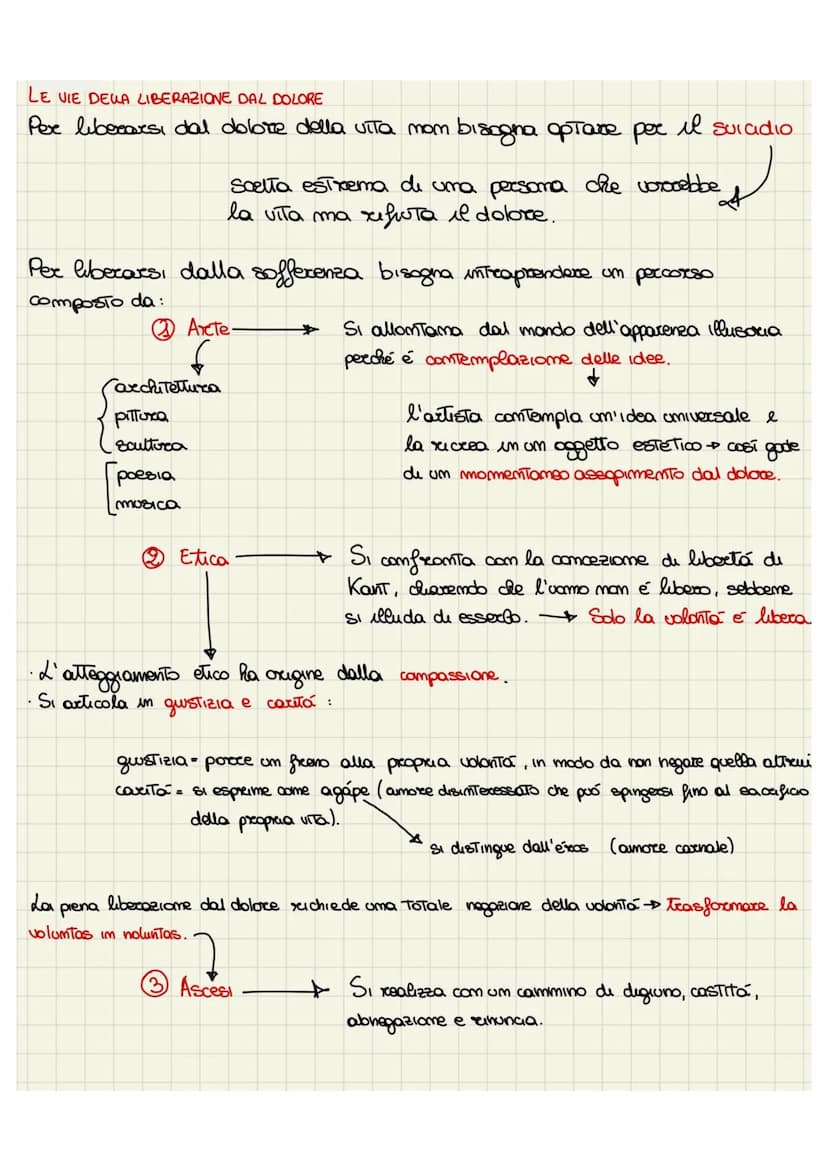 LE VIE DELLA LIBERAZIONE DAL DOLORE
Per liberarsi dal dolore della vita non bisogna optare per il suicidio
scelta estrema di una persona che vorrebbe
la vita ma rifiuta il dolore.
Per liberarsi dalla sofferenza bisogna intraprendere un percorso
composto da:
① Arte → Si allontana dal mondo dell'apparenza illusoria
perché é contemplazione delle idee.
architettura
pittura
scultura
poesia
musica
l'artista contempla un'idea universale e
la ricrea in un oggetto estetico → così gode
di un momentaneo assopimento dal dolore.
② Etica → Si confronta con la concezione di libertá di
Kant, chiarendo che l'uomo non é libero, sebbene
si illuda di esserlo. → Solo la volontá é libera
· L'atteggiamento etico ha origine dalla compassione.
· Si articola in giustizia e caritá :
giustizia = porre un freno alla propria volontá, in modo da non negare quella altrui
caritá = si esprime come agápe (amore disinteressato che puó spingersi fino al sacrificio
della propria vita).
si distingue dall'éros (amore carnale)
La piena liberazione dal dolore richiede una totale negazione della volontá → Trasformare la
voluntas in noluntas.
③ Ascesi → Si realizza con un cammino di digiuno, castitá,
abnegazione e rinuncia.